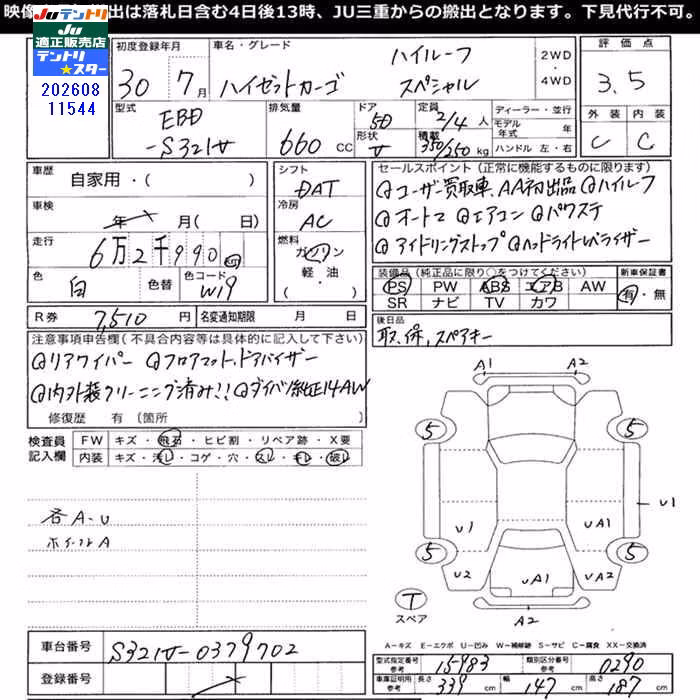 映像 出は落札日含む4日後13時、JU三重からの搬出となります。下見代行不可。
JUテントリ
JU 適正販売店
テントリ★スター
202608
11544
初度登録年月 車名・グレード 2WD・4WD 評価点
30 7月 ハイゼットカーゴ ハイルーフ スペシャル 3.5
型式 排気量 ドア 定員 ディーラー・並行 外装 内装
EBD-S321V 660 CC 5D 2/4人 モデル年式 年 C C
形状 V 積載 350/250 kg ハンドル 左・右
車歴 自家用・( ) シフト セールスポイント(正常に機能するものに限ります)
DAT @ユーザー買取車、AA初出品 @ハイルーフ
車検 年 月( 日) 冷房 AC @オートマ @エアコン @パワステ
走行 6万2千990 @アイドリングストップ @ヘッドライトレベライザー
燃料 ガソリン 軽油 ・( )
色 白 色替 色コード W19
装備品(純正品に限り○をつけてください) 新車保証書
PS PW ABS エアB AW 有・無
SR ナビ TV カワ
R券 7,510円 名変通知期限 月 日
後日品
取、保、スペアキー
注意事項申告欄(不具合内容等は具体的に記入して下さい)
@リアワイパー @フロアマット、ドアバイザー
@内外装クリーニング済み!! @ダイハツ純正14AW
修復歴 有(箇所 )
検査員記入欄 FW キズ・飛石・ヒビ割・リペア跡・X要
内装 キズ・汚レ・コゲ・穴・スレ・キレ・破レ
各A・U
ポイントA
A1 A2
5 5
U1 UA1 U1
5 5
U2 UA1 UA2
T スペア A2
A=キズ E=エクボ U=凹み W=補修跡 S=サビ C=腐食 XX=交換済
車台番号 S321V-0379702
登録番号
型式指定番号 参考 15483 類別区分番号 参考 0290
車庫証明用 参考 長さ 339 cm 幅 147 cm 高さ 187 cm